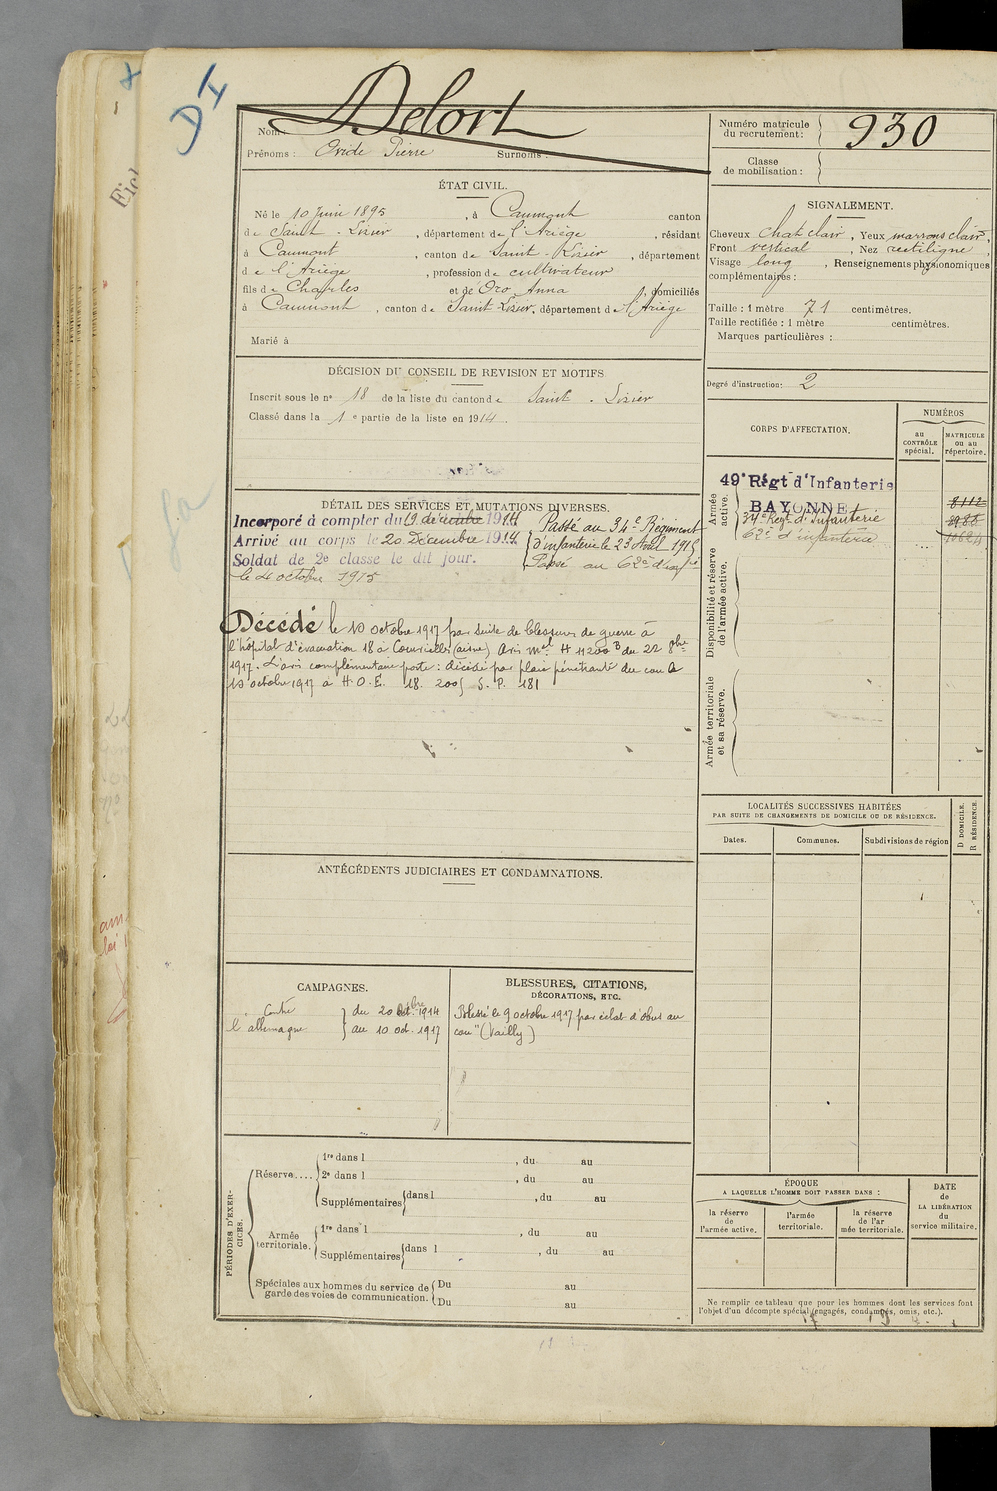 DI
Nom: Delort
Prénoms: Ovide Pierre Surnoms:
Numéro matricule du recrutement: 930
Classe de mobilisation:
ÉTAT CIVIL.
Né le 10 Juin 1895, à Caumont canton
de Saint-Lizier, département de l'Ariège, résidant
à Caumont, canton de Saint-Lizier, département
de l'Ariège, profession de cultivateur
fils de Charles et de Oro Anna, domiciliés
à Caumont, canton de Saint Lizier, département de l'Ariège
Marié à
SIGNALEMENT.
Cheveux chat clair, Yeux marrons clair,
Front vertical, Nez rectiligne,
Visage long, Renseignements physionomiques
complémentaires:
Taille: 1 mètre 71 centimètres.
Taille rectifiée: 1 mètre centimètres.
Marques particulières:
Degré d'instruction: 2
DÉCISION DU CONSEIL DE REVISION ET MOTIFS
Inscrit sous le no 18 de la liste du canton de Saint-Lizier
Classé dans la 1e partie de la liste en 1914.
CORPS D'AFFECTATION.
NUMÉROS
au CONTRÔLE spécial.
MATRICULE ou au répertoire.
Armée active.
49e Régt d'Infanterie
BAYONNE
8112
34e Régt d'Infanterie
62e d'infanterie
Disponibilité et réserve de l'armée active.
Armée territoriale et sa réserve.
DÉTAIL DES SERVICES ET MUTATIONS DIVERSES.
Incorporé à compter du 19 décembre 1914
Arrivé au corps le 20 Décembre 1914
Soldat de 2e classe le dit jour.
Passé au 34e Régiment
d'infanterie le 23 Avril 1915
Passé au 62e d'inf
le 4 octobre 1915
Décédé le 10 octobre 1917 par suite de blessures de guerre à
l'hôpital d'évacuation 18 à Courcelles (aisne) Avis mel H 11200 B du 22 8bre
1917. L'avis complémentaire porte: décédé par plaie pénétrante du cou le
10 octobre 1917 à H.O.E. 18. 2005 S.P. 181
LOCALITÉS SUCCESSIVES HABITÉES
PAR SUITE DE CHANGEMENTS DE DOMICILE OU DE RÉSIDENCE.
Dates. Communes. Subdivisions de région
D DOMICILE. R RÉSIDENCE.
ANTÉCÉDENTS JUDICIAIRES ET CONDAMNATIONS.
CAMPAGNES.
Contre l'allemagne
du 20 1914
au 10 oct. 1917
BLESSURES, CITATIONS,
DÉCORATIONS, ETC.
Blessé le 9 octobre 1917 par éclat d'obus au
cou "(Vailly)
PÉRIODES D'EXERCICES.
Réserve....
1re dans l , du au
2e dans l , du au
Supplémentaires dans l , du au
Armée territoriale.
1re dans l , du au
Supplémentaires dans l , du au
Spéciales aux hommes du service de garde des voies de communication.
Du au
Du au
ÉPOQUE
A LAQUELLE L'HOMME DOIT PASSER DANS:
la réserve de l'armée active.
l'armée territoriale.
la réserve de l'armée territoriale.
DATE de LA LIBÉRATION du service militaire.
Ne remplir ce tableau que pour les hommes dont les services font
l'objet d'un décompte spécial (engagés, condamnés, omis, etc.).